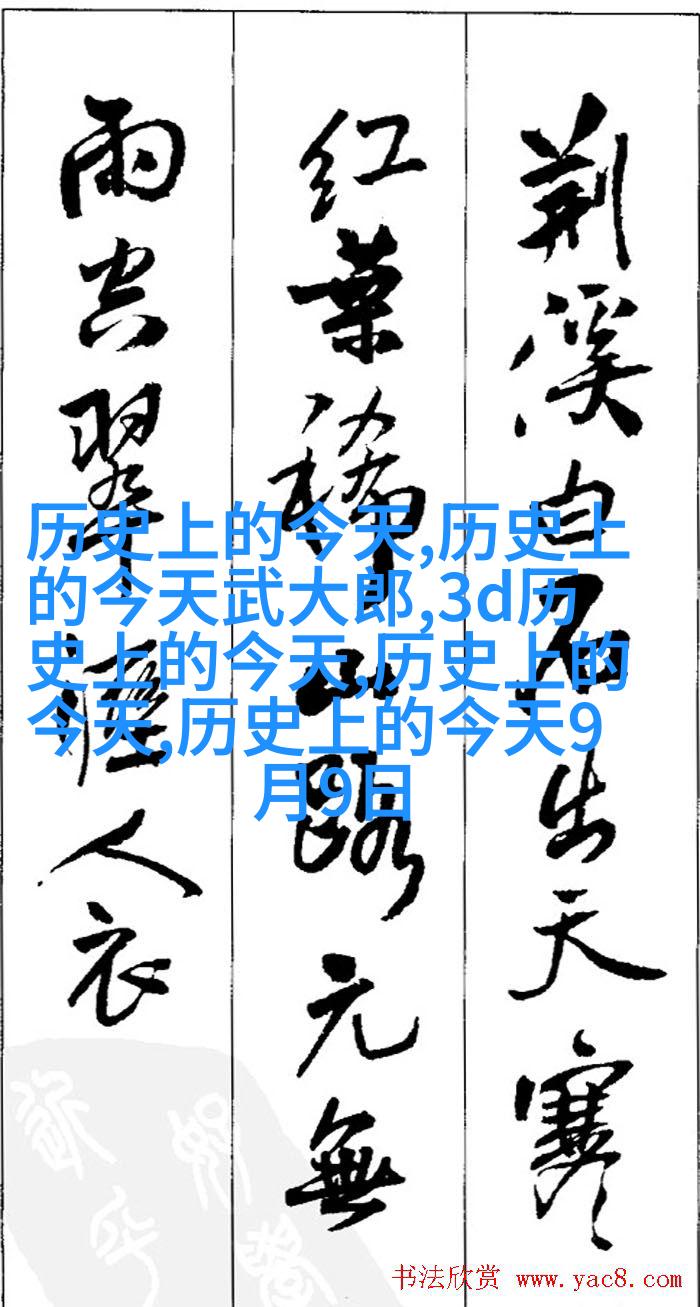 荆溪白石出天寒
红葉稀山路元無
雨空翠濕人衣
历史上的今天,历史上
的今天武大郎,3d历
史上的今天,历史上的
今天,历史上的今天9
月9日
书法欣赏 www.yac8.com